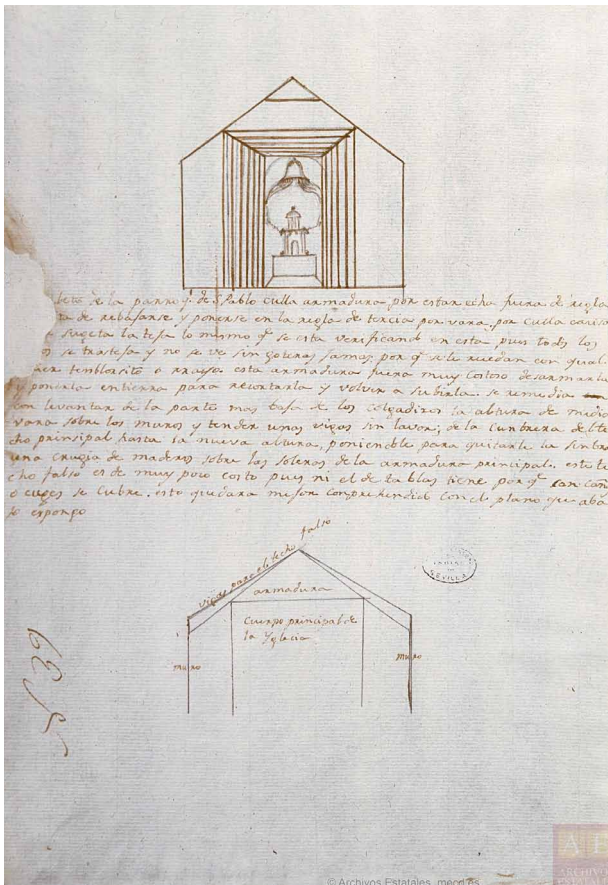 de la parroq.l de S. Pablo culla armadura por estar echa fuera de regla
de rebasarse y ponerse en la regla de tercia por vara, por culla causa
sugeta la tesa lo mismo q.e se esta verificando en esta pues todos los
se trastesa y no se ve sin goteras jamas, por q.e se le ruedan con qual
temblorsito o arraya esta armadura fuera muy costoso desarmarla
y ponerla entierra para recortarla y volver a subirla. se remedia
con levantar de la parte mas basa de los colgadiros la altura de media
vara sobre los muros y tender unas vigas sin lavor, de la cunbrera del te
cho prinsipal hasta la nueva altura, poniendole para quitarle la sintra
una crugia de maderos sobre las soleras de la armadura principal. este te
cho falso es de muy poco costo pues ni el de tablas tiene por q.e con caña
o cuges se cubre. esto quedara mejor conprehendido con el plano que aba
jo espongo
vigas para el techo falso
armadura
Cuerpo principal de
la Yglecia
muro
muro
SEVILLA
© Archivos Estatales, mecd.es
ARCHIVOS